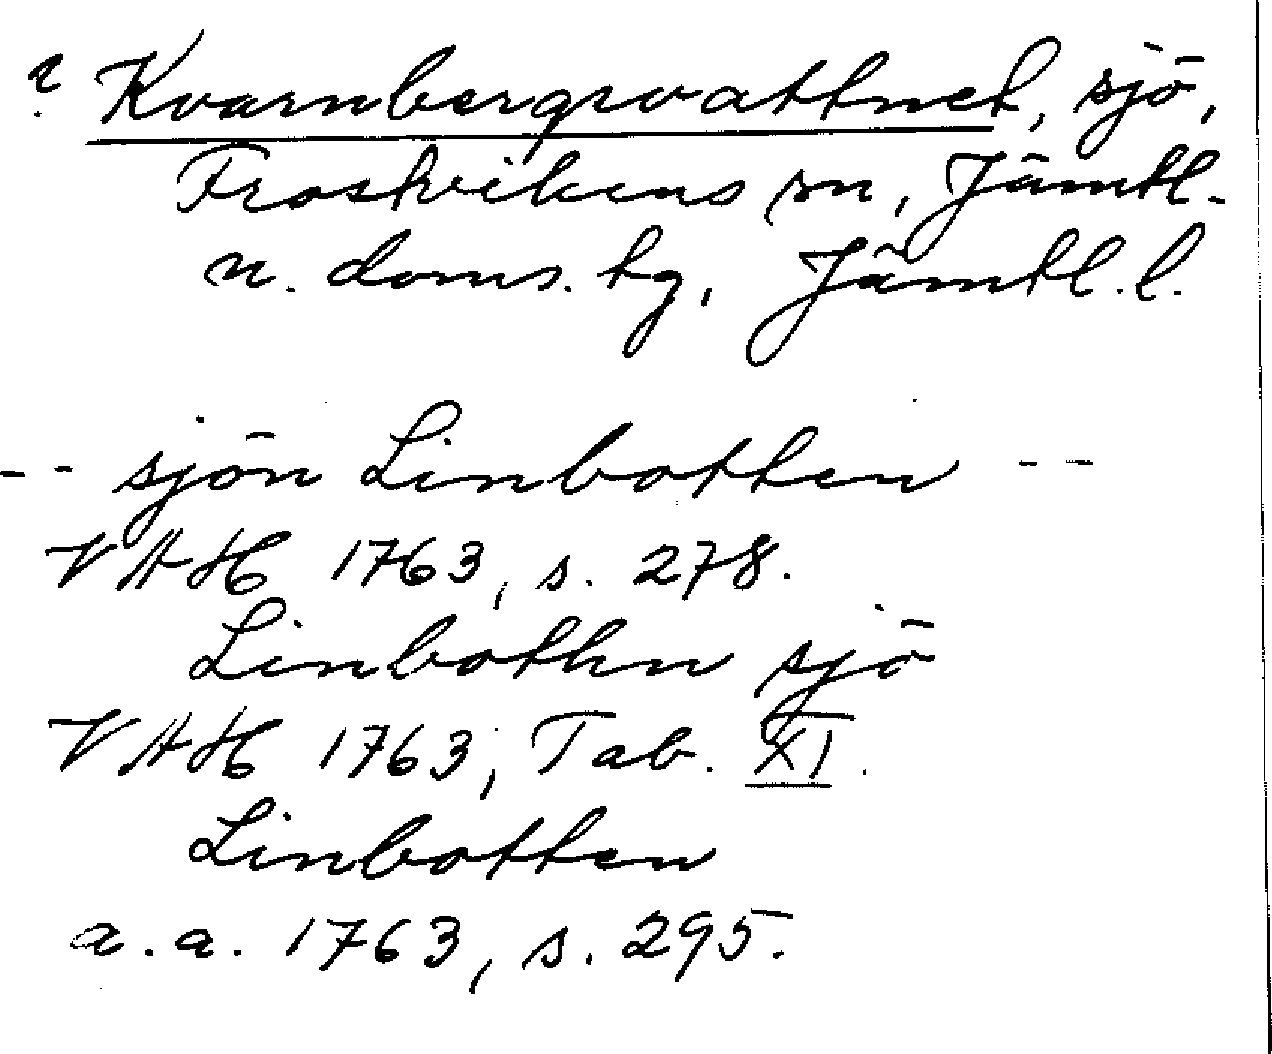 ? Kvarnbergsvattnet, sjö,
Frostvikens sn, Jämtl.
n. doms. tg, Jämtl. l.
-- sjön Linbotten --
VAH 1763, s. 278.
Linbothn sjö
VAH 1763, Tab. XI.
Linbotten
a.a. 1763, s. 295.